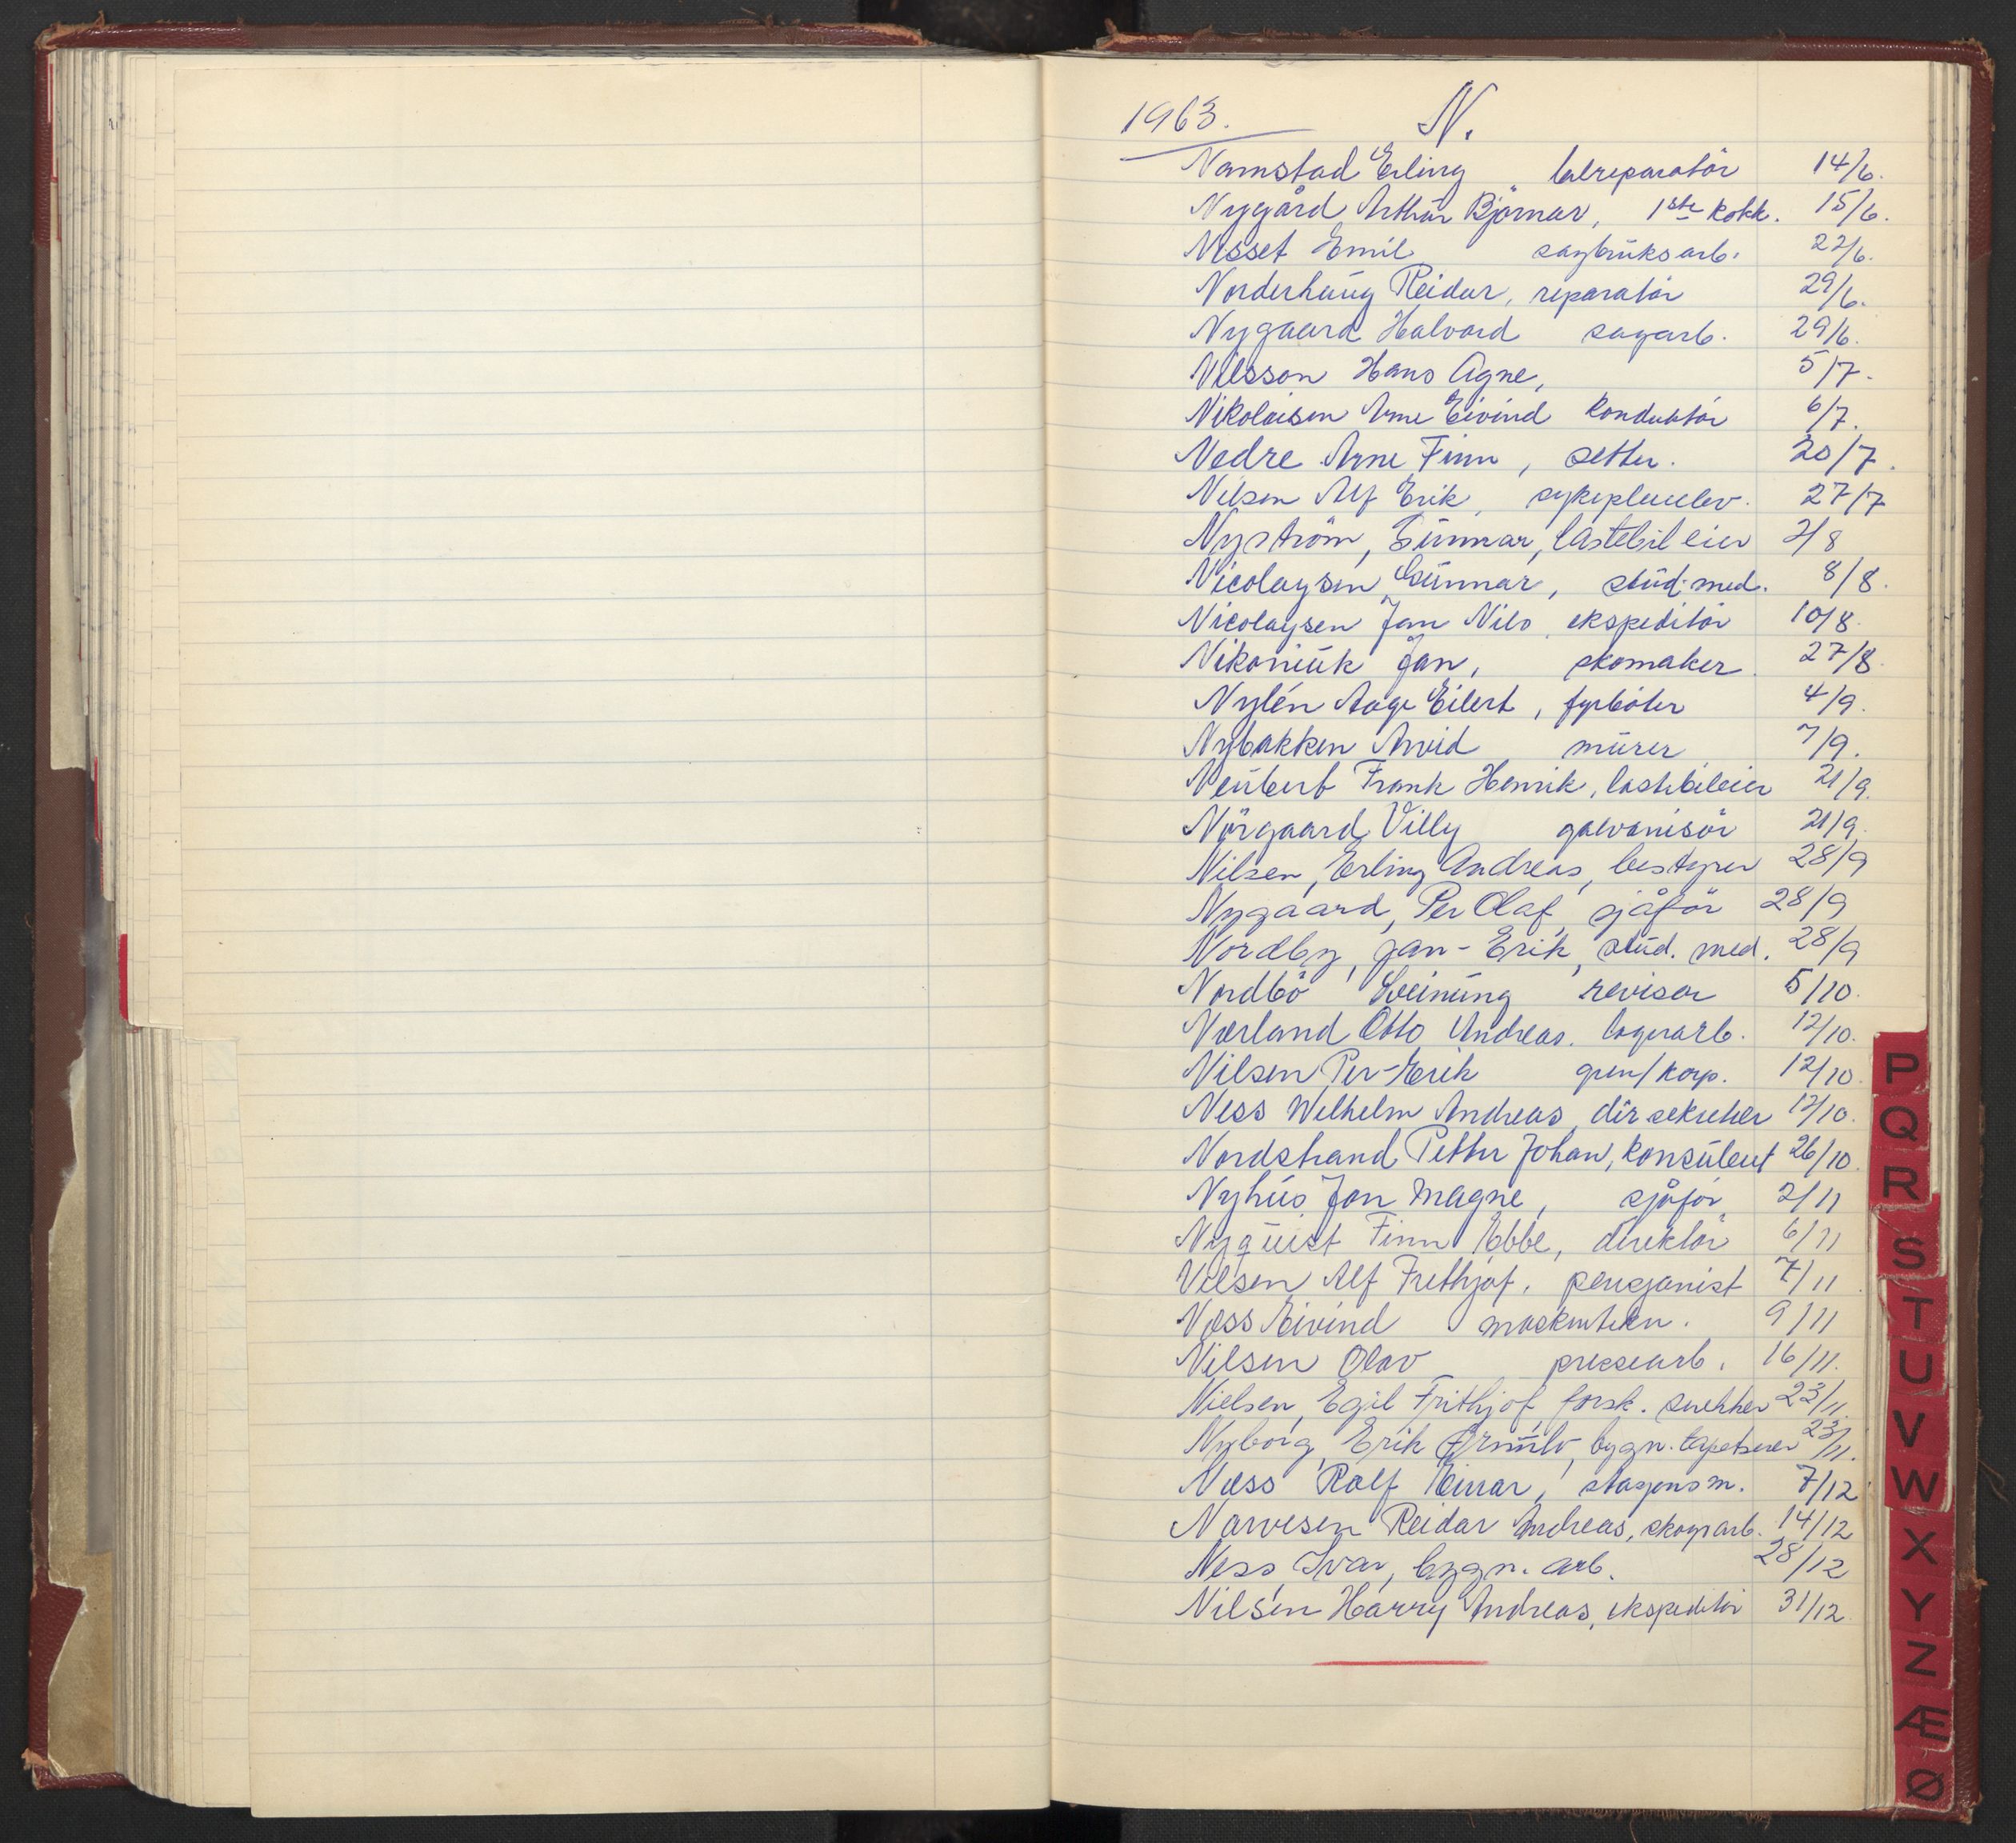 1963. N.
Namstad Erling bilreparatör 14/6.
Nygård Arthur Björnar, 1ste kokk. 15/6.
Nisset Emil sagbruksarb. 22/6.
Norderhaug Reidar, reparatör 29/6.
Nygaard Halvard sagarb. 29/6.
Nilsson Hans Agne, 5/7.
Nikolaisen Arne Eivind konduktör 6/7.
Nedre Arne Finn, setter. 20/7.
Nilsen Alf Erik, sykepleieelev. 27/7
Nyström, Gunnar, lastebileier 2/8
Nicolaysen Gunnar, stud. med. 8/8.
Nicolaysen Jan Nils, ekspeditör 10/8.
Nikoniuk Jan, skomaker. 27/8.
Nylén Aage Eilert, fyrböter 4/9.
Nybakken Arvid murer 7/9.
Neubert Frank Henrik, lastebileier 21/9.
Nörgaard Villy galvanisör 21/9.
Nilsen, Erling Andreas, bestyrer 28/9
Nygaard, Per Olaf, sjåför 28/9
Nordby, Jan-Erik, stud. med. 28/9
Nordbö Sveinung revisor 5/10.
Nærland Otto Andreas. lagerarb. 12/10.
Nilsen Per-Erik gren/korp. 12/10.
Ness Wilhelm Andreas, dir sekretær 12/10.
Nordstrand Petter Johan, konsulent 26/10.
Nyhus Jan Magne, sjåför, 2/11
Nyquist Finn Ebbe, direktör 6/11
Nilsen Alf Frithjof. pensjonist 7/11
Næss Eivind maskintekn. 9/11
Nilsen Olav pressearb. 16/11.
Nielsen, Egil Frithjof, forsk. snekker 23/11.
Nyborg, Erik Ørnulv, bygn. tapetserer 23/11.
Næss Rolf Einar, stasjonsm. 7/12
Narvesen Reidar Andreas, skogsarb. 14/12
Ness, Ivar, bygn. arb. 28/12
Nilsen Harry Andreas, ekspeditör 31/12.
P
Q
R
S
T
U
V
W
X
Y
Z
Æ
Ø